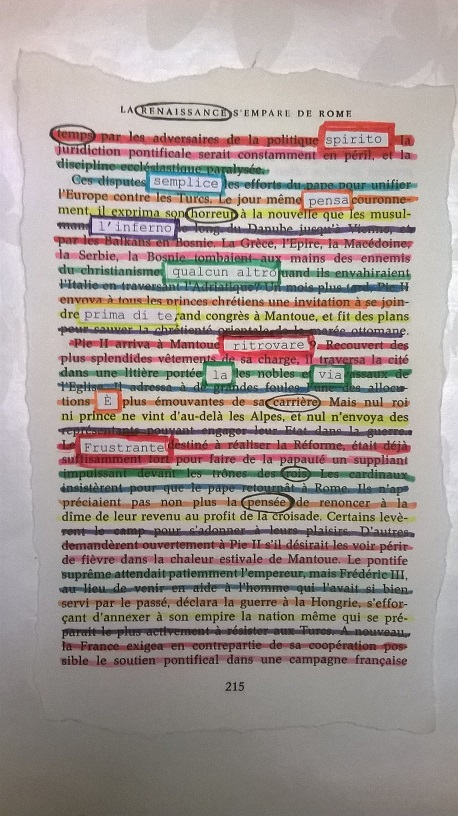 LA RENAISSANCE S'EMPARE DE ROME
temps par les adversaires de la politique spirito la
juridiction pontificale serait constamment en péril, et la
discipline ecclésiastique paralysée.
Ces disputes semplice les efforts du pape pour unifier
l'Europe contre les Turcs. Le jour même pensa couronne-
ment, il exprima son horreu à la nouvelle que les musul-
mans l'inferno long du Danube jusqu'à Vienne, et
par les Balkans en Bosnie. La Grèce, l'Epire, la Macédoine,
la Serbie, la Bosnie tombaient aux mains des ennemis
du christianisme qualcun altro quand ils envahiraient
l'Italie en traversant l'Adriatique? Un mois plus tard, Pie II
envoya à tous les princes chrétiens une invitation à se join-
dre prima di te rand congrès à Mantoue, et fit des plans
pour sauver la chrétienté orientale de la marée ottomane.
Pie II arriva à Mantoue ritrovare 9. Recouvert des
plus splendides vêtements de sa charge, il traversa la cité
dans une litière portée la les nobles et via issaux de
l'Eglise. Il adressa à de grandes foules une des allocu-
tions È plus émouvantes de sa carrière. Mais nul roi
ni prince ne vint d'au-delà les Alpes, et nul n'envoya des
représentants pouvant engager leur Etat dans la guerre.
Le Frustrante destiné à réaliser la Réforme, était déjà
suffisamment fort pour faire de la papauté un suppliant
impuissant devant les trônes des rois. Les cardinaux
insistèrent pour que le pape retournât à Rome. Ils n'ap-
préciaient pas non plus la pensée de renoncer à la
dîme de leur revenu au profit de la croisade. Certains levè-
rent le camp pour s'adonner à leurs plaisirs. D'autres
demandèrent ouvertement à Pie II s'il désirait les voir périr
de fièvre dans la chaleur estivale de Mantoue. Le pontife
suprême attendait patiemment l'empereur, mais Frédéric III,
au lieu de venir en aide à l'homme qui l'avait si bien
servi par le passé, déclara la guerre à la Hongrie, s'effor-
çant d'annexer à son empire la nation même qui se pré-
parait le plus activement à résister aux Turcs. A nouveau,
la France exigea en contrepartie de sa coopération pos-
sible le soutien pontifical dans une campagne française
215